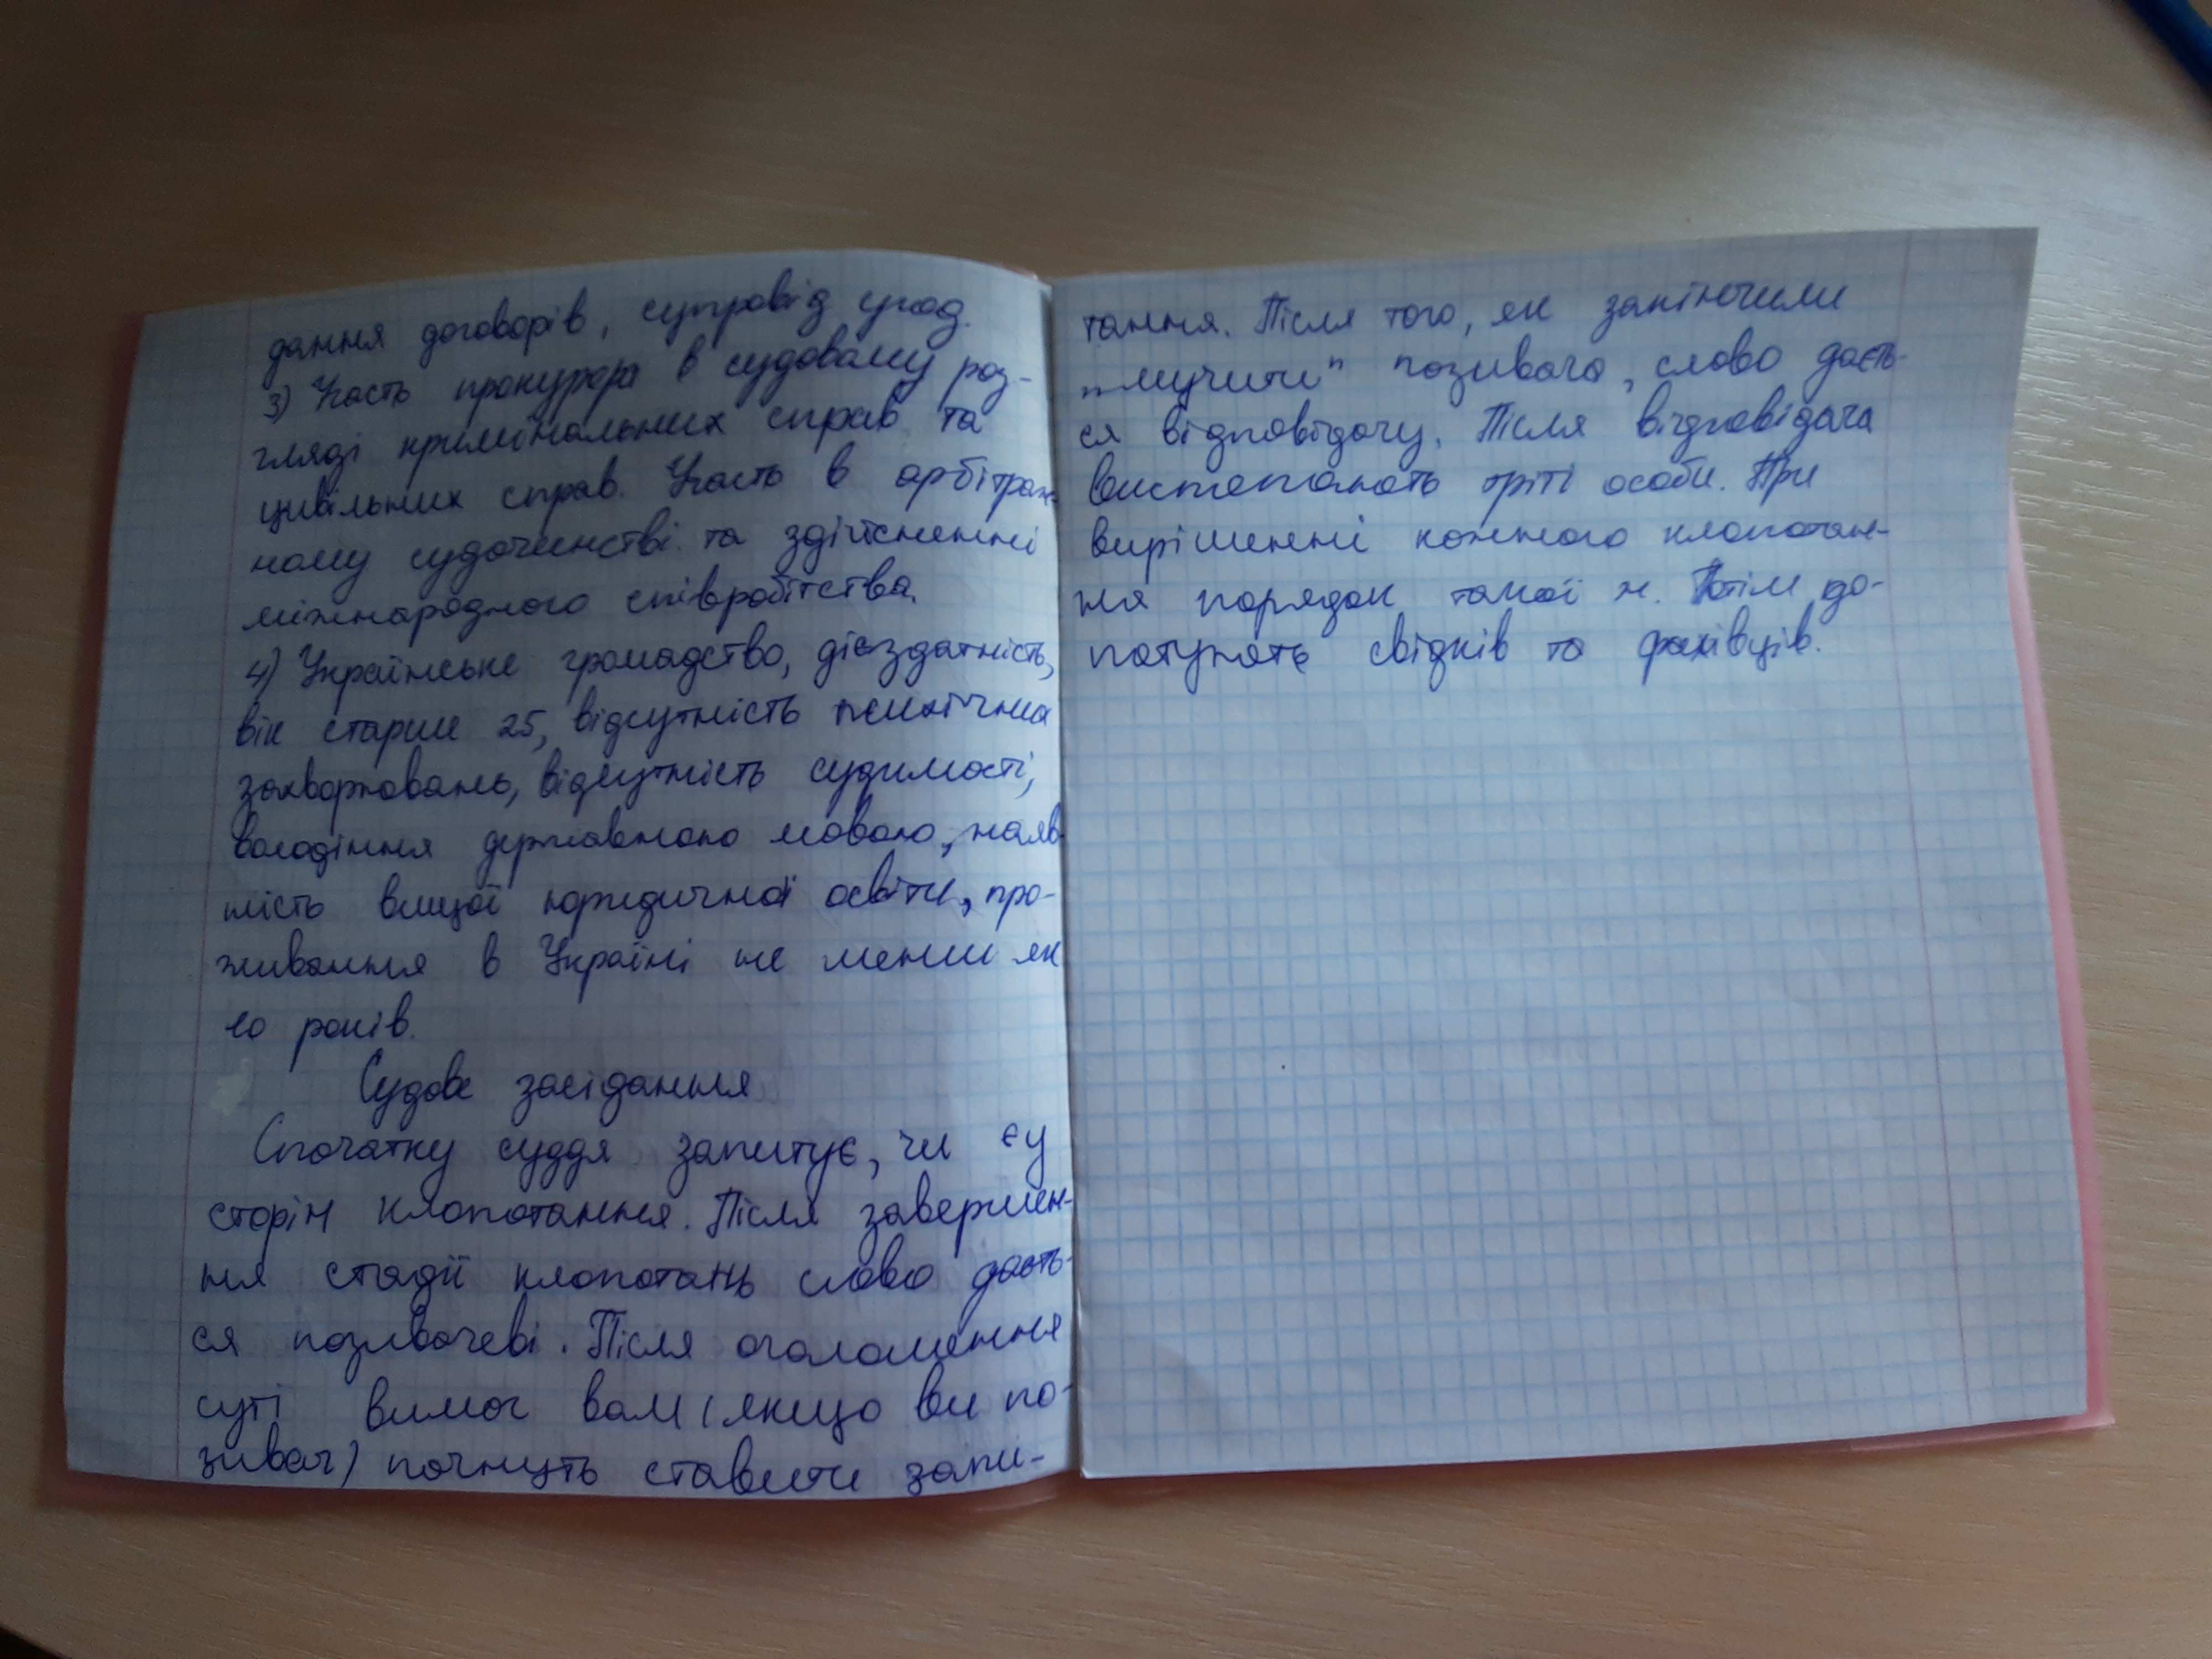 дання договорів, супровід угод.
3) Участь прокурора в судовому роз-
гляді кримінальних справ та
цивільних справ. Участь в арбітраж-
ному судочинстві та здійсненні
міжнародного співробітства.
4) Українське громадство, дієздатність,
вік старше 25, відсутність психічних
захворювань, відсутність судимості,
володіння державною мовою, наяв-
ність вищої юридичної освіти, про-
живання в Україні не менш як
10 років.
Судове засідання
Спочатку суддя запитує, чи є у
сторін клопотання. Після завершен-
ня стадії клопотань слово дасть-
ся позивачеві. Після оголошення
суті вимог вам (якщо ви по-
зивач) почнуть ставити запи-
тання. Після того, як закінчили
„мучити" позивача, слово даєть-
ся відповідачу. Після відповідача
виступають треті особи. При
вирішенні кожного клопотан-
ня порядок такої ж. Потім до-
питують свідків та фахівців.